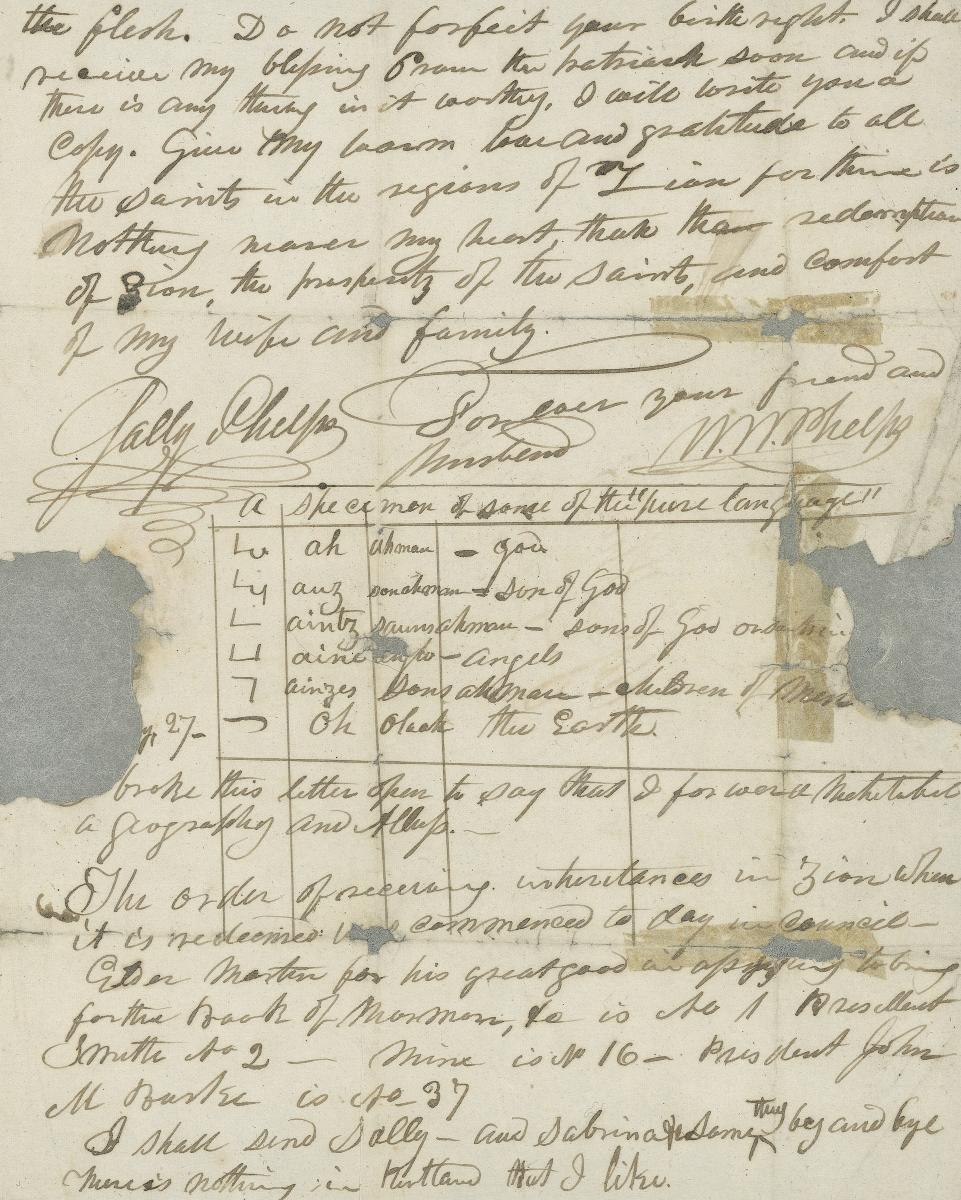 the flesh. Do not forfeit your birth right. I shall
receive my blessing from the patriarch soon and if
there is any thing in it worthy, I will write you a
Copy. Give my warm love and gratitude to all
the saints in the regions of Zion for there is
Nothing nearer my heart, than the redemption
of Zion, the prosperity of the saints, and comfort
of my wife and family.
For ever your friend and
Sally Phelps husband W. W. Phelps
A specimen of some of the "pure language"
ah ahman - god
auz sonahman - son of God
aintz saunsahman - sons of God or
aine - angels
ainzes sonsahman - children of men
27- oh olaah the Earth.
broke this letter open to say that I forward Mehitabel
a geography and Atlass.
The order of receiving inheritances in Zion when
it is redeemed commenced to day in council-
Elder Martin for his great good in to bring
forth the Book of Mormon, &c is No 1 President
Smith No 2 - Mine is No 16 - President John
M Burke is No 37
I shall send Sally - and Sabrina some thing by and bye
There is nothing in Kirtland that I like.